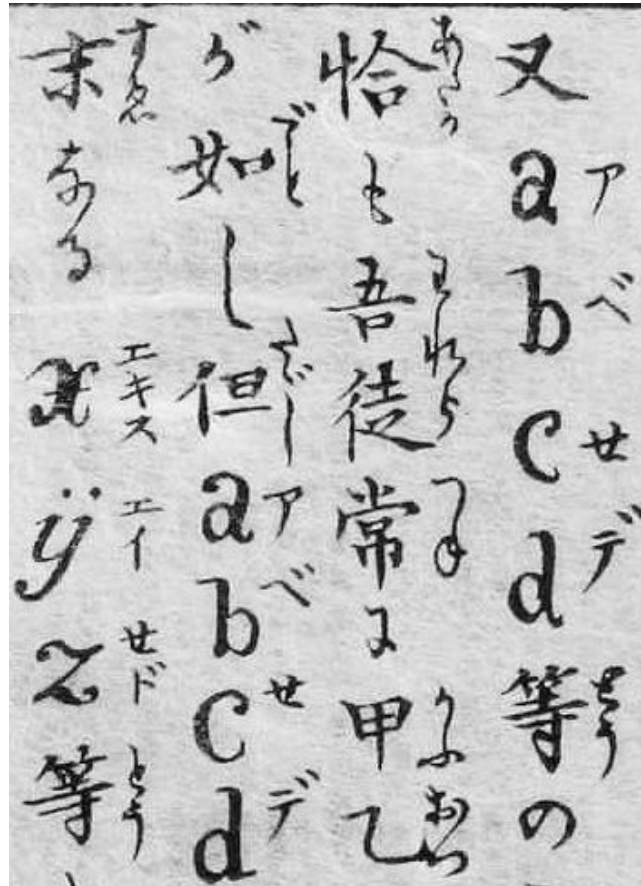 又abcd等の
恰も吾徒常に甲乙
が如し但abcd
末なるxÿz等